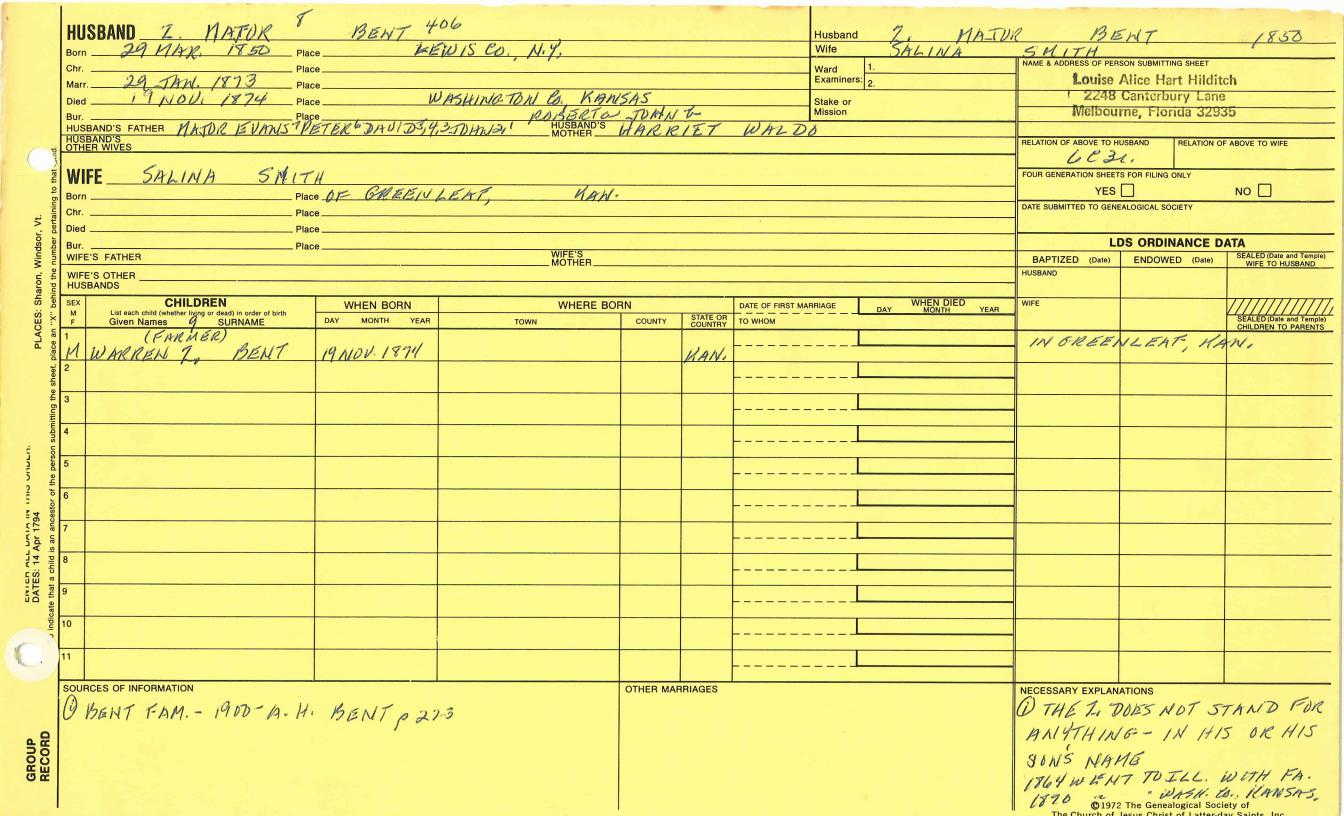 HUSBAND Z. MAJOR 8 BENT 406
Born 29 MAR. 1850 Place LEWIS CO., N.Y.
Chr. Place
Marr. 29 JAN. 1873 Place
Died 19 NOV. 1874 Place WASHINGTON Co, KANSAS
Bur. Place ROBERT JOHN
HUSBAND'S FATHER MAJOR EVANS PETER DAVID JOHN HUSBAND'S MOTHER HARRIET WALDO
HUSBAND'S OTHER WIVES
WIFE SALINA SMITH
Born Place OF GREENLEAF, KAN.
Chr. Place
Died Place
Bur. Place
WIFE'S FATHER WIFE'S MOTHER
WIFE'S OTHER HUSBANDS
Husband Z. MAJOR BENT 1850
Wife SALINA SMITH
Ward Examiners: 1.
2.
Stake or Mission
NAME & ADDRESS OF PERSON SUBMITTING SHEET
Louise Alice Hart Hilditch
2248 Canterbury Lane
Melbourne, Florida 32935
RELATION OF ABOVE TO HUSBAND RELATION OF ABOVE TO WIFE
FOUR GENERATION SHEETS FOR FILING ONLY
YES NO
DATE SUBMITTED TO GENEALOGICAL SOCIETY
LDS ORDINANCE DATA
BAPTIZED (Date) ENDOWED (Date) SEALED (Date and Temple) WIFE TO HUSBAND
HUSBAND
WIFE
SEALED (Date and Temple) CHILDREN TO PARENTS
SEX M F
CHILDREN
List each child (whether living or dead) in order of birth
Given Names 9 SURNAME
WHEN BORN
DAY MONTH YEAR
WHERE BORN
TOWN COUNTY STATE OR COUNTRY
DATE OF FIRST MARRIAGE
TO WHOM
WHEN DIED
DAY MONTH YEAR
1 (FARMER)
M WARREN Z. BENT 19 NOV. 1874 KAN. IN GREENLEAF, KAN.
2
3
4
5
6
7
8
9
10
11
SOURCES OF INFORMATION
① BENT FAM. - 1900 - A. H. BENT p 273
OTHER MARRIAGES
NECESSARY EXPLANATIONS
① THE Z. DOES NOT STAND FOR
ANYTHING - IN HIS OR HIS
SON'S NAME
1864 WENT TO ILL. WITH FA.
1870 " " WASH. Co., KANSAS.
©1972 The Genealogical Society of
The Church of Jesus Christ of Latter-day Saints, Inc.
PLACES: Sharon, Windsor, Vt.
ENTER ALL DATA IN THIS ORDER:
DATES: 14 Apr 1794
To indicate that a child is an ancestor of the person submitting the sheet, place an "X" behind the number pertaining to that child.
GROUP RECORD